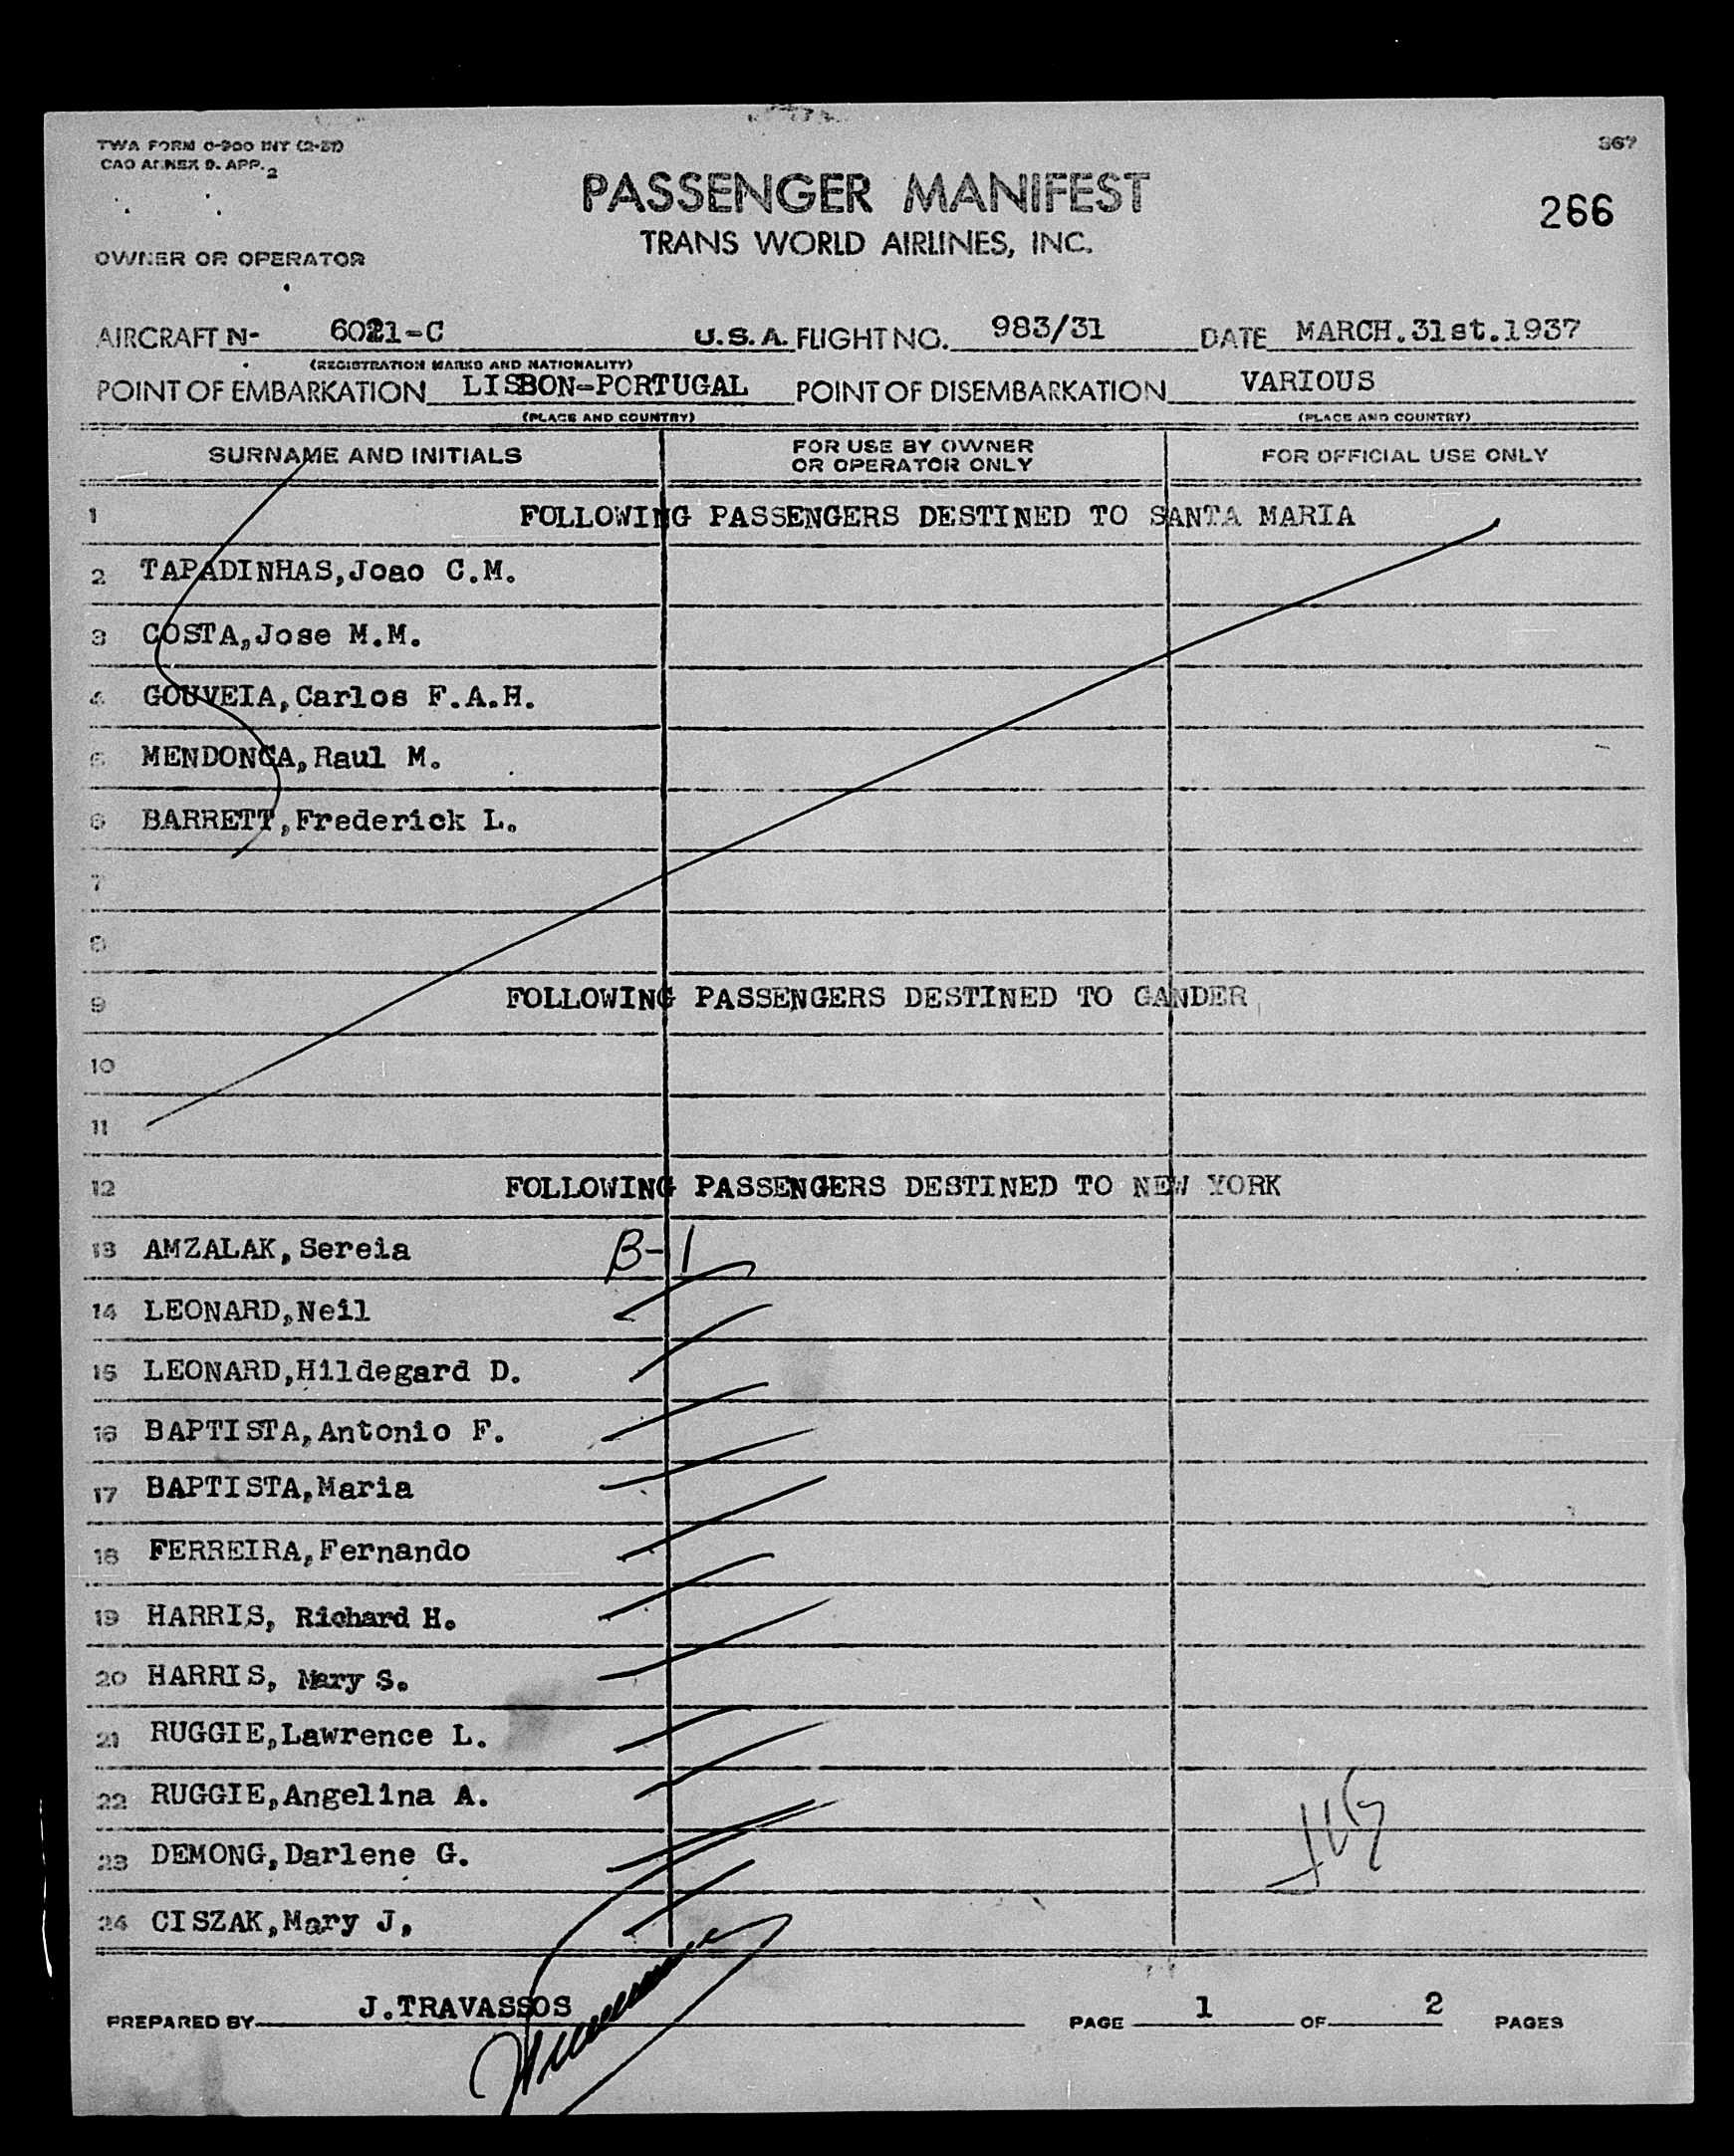 TWA FORM O-900 INT (2-51)
CAO ANNEX 9. APP. 2
367
PASSENGER MANIFEST
266
TRANS WORLD AIRLINES, INC.
OWNER OR OPERATOR
AIRCRAFT N- 6021-C U.S.A. FLIGHT NO. 983/31 DATE MARCH.31st.1937
(REGISTRATION MARKS AND NATIONALITY)
POINT OF EMBARKATION LISBON-PORTUGAL POINT OF DISEMBARKATION VARIOUS
(PLACE AND COUNTRY) (PLACE AND COUNTRY)
SURNAME AND INITIALS FOR USE BY OWNER OR OPERATOR ONLY FOR OFFICIAL USE ONLY
1 FOLLOWING PASSENGERS DESTINED TO SANTA MARIA
2 TAPADINHAS,Joao C.M.
3 COSTA,Jose M.M.
4 GOUVEIA,Carlos F.A.H.
5 MENDONCA,Raul M.
6 BARRETT,Frederick L.
7
8
9 FOLLOWING PASSENGERS DESTINED TO GANDER
10
11
12 FOLLOWING PASSENGERS DESTINED TO NEW YORK
13 AMZALAK,Sereia B-1
14 LEONARD,Neil
15 LEONARD,Hildegard D.
16 BAPTISTA,Antonio F.
17 BAPTISTA,Maria
18 FERREIRA,Fernando
19 HARRIS, Richard H.
20 HARRIS, Mary S.
21 RUGGIE,Lawrence L.
22 RUGGIE,Angelina A.
23 DEMONG,Darlene G.
24 CISZAK,Mary J,
PREPARED BY J.TRAVASSOS PAGE 1 OF 2 PAGES